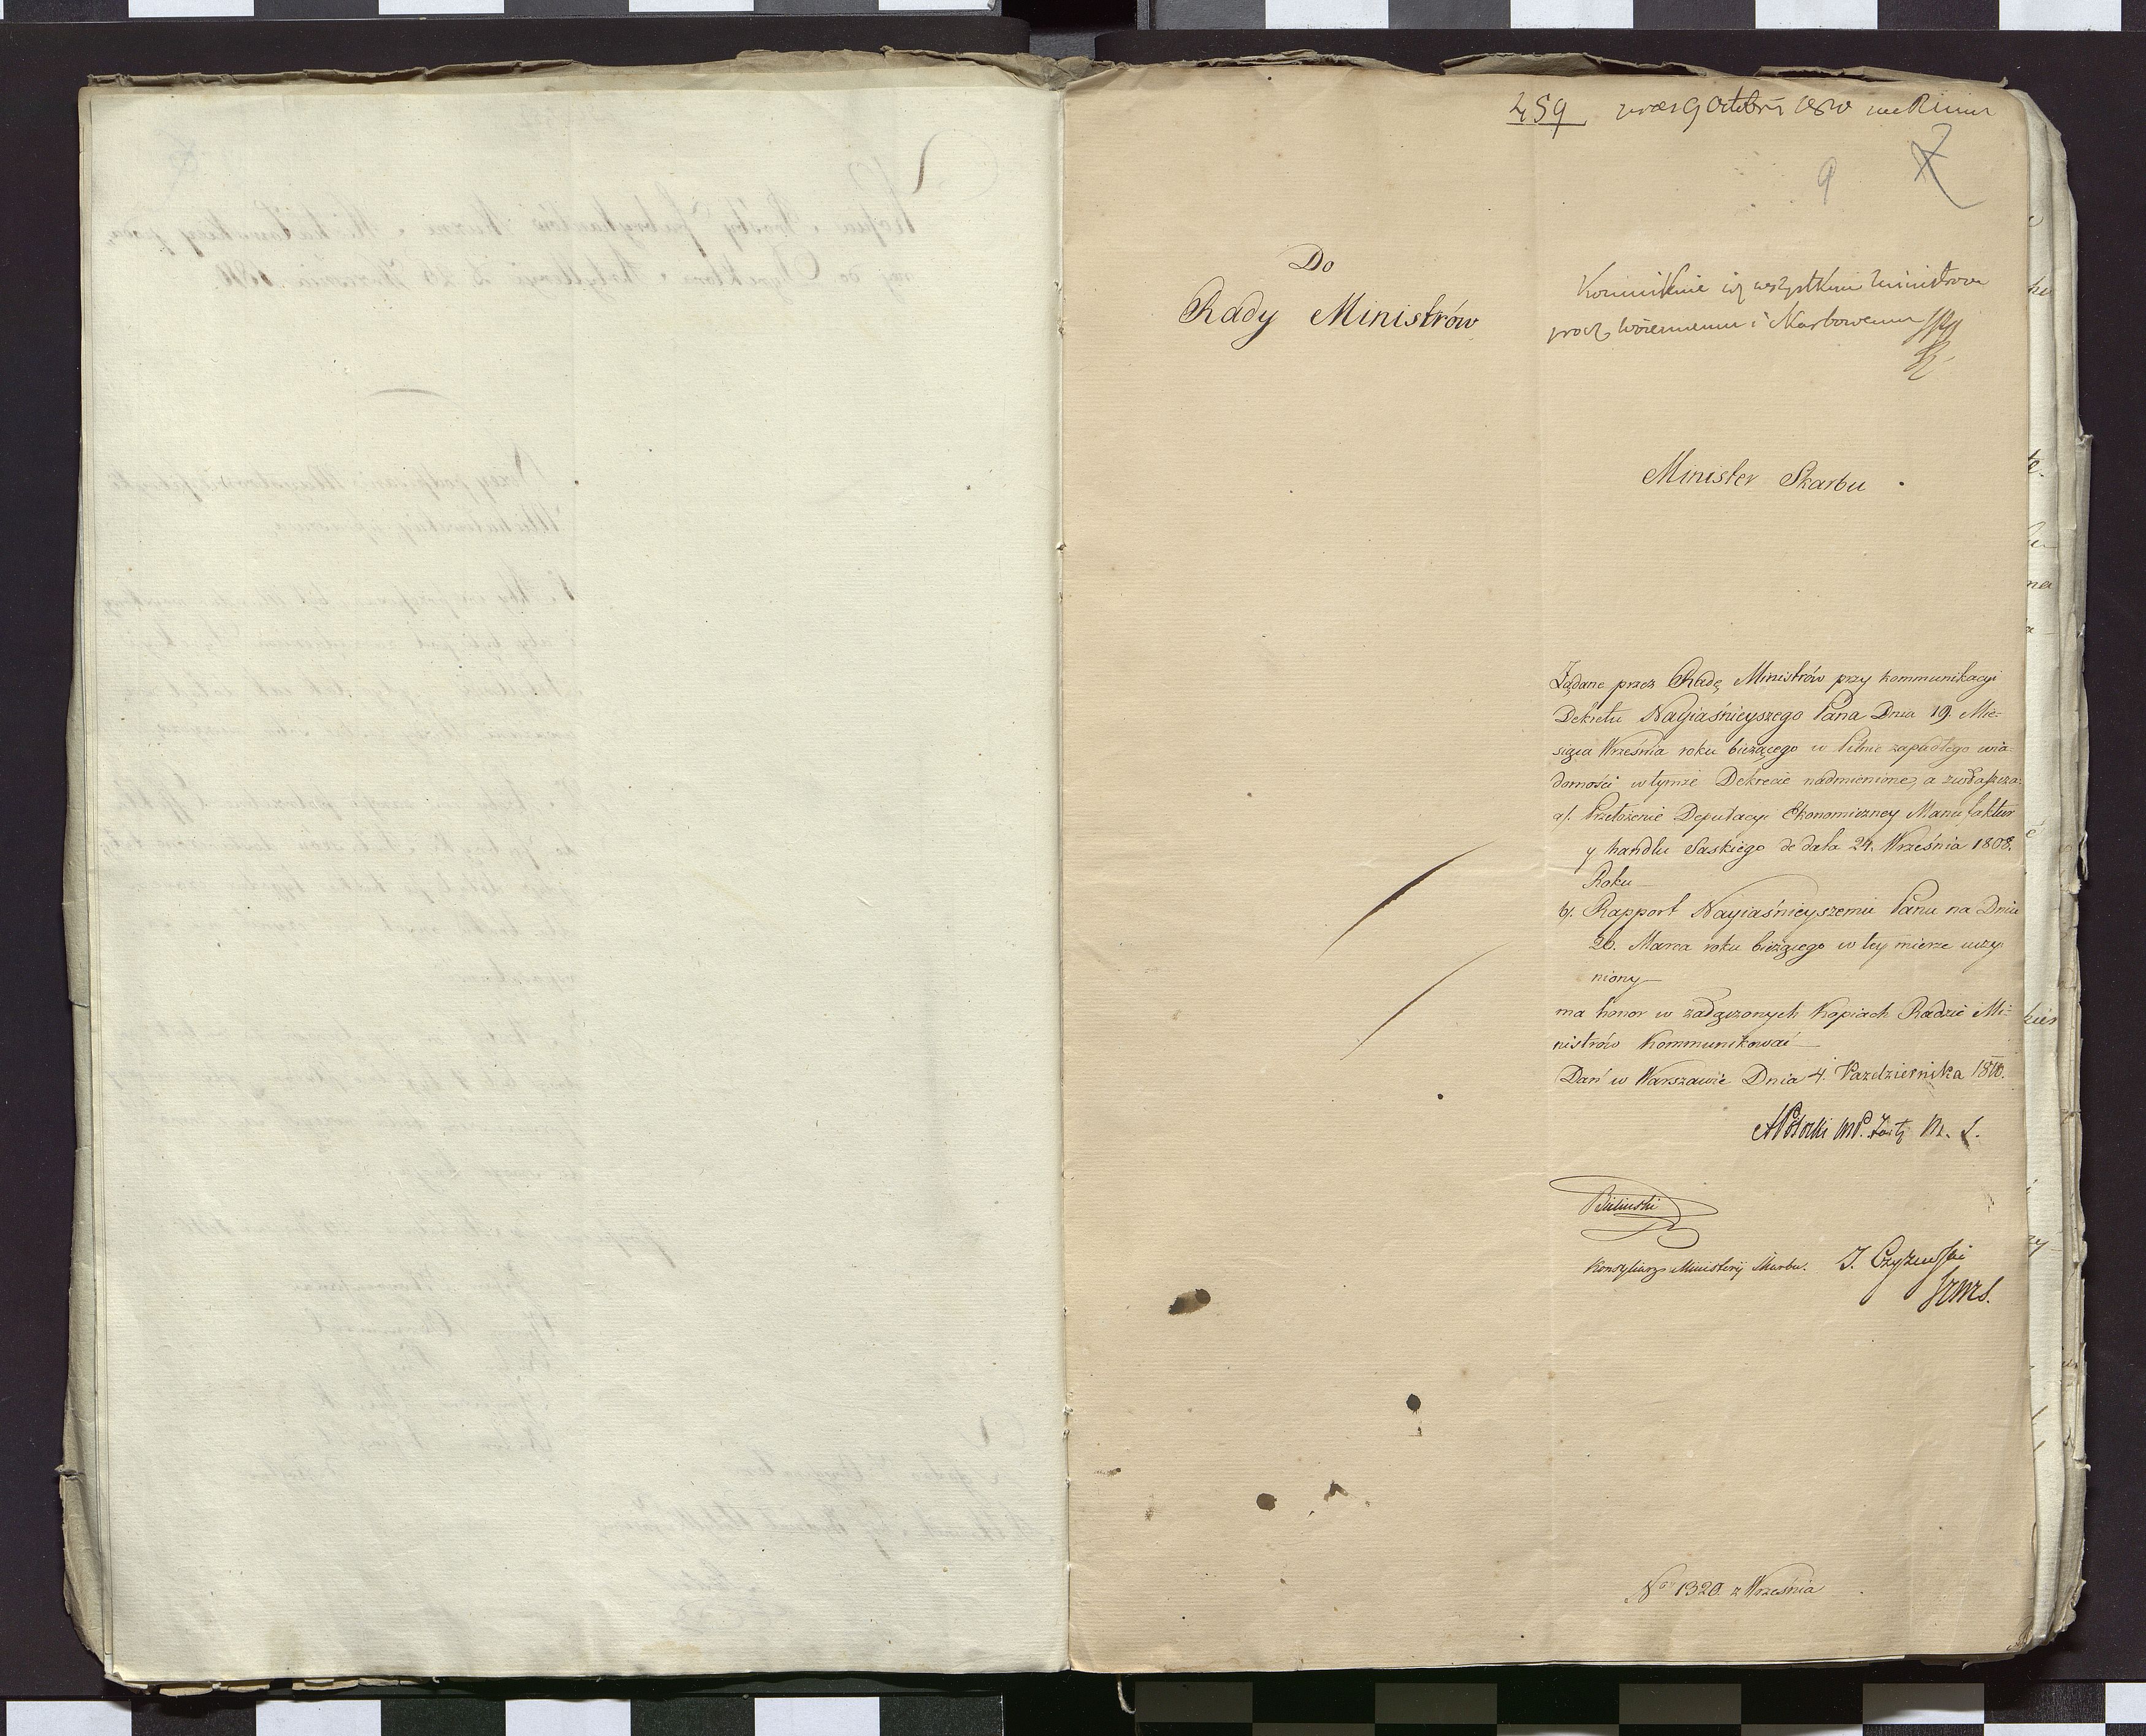 459
9 Octobris 1810
9
7
Do
Rady Ministrów
wszystkim Ministrom
prócz Woiennemu i Skarbowemu
Minister Skarbu.
Żądane przez Radę Ministrów przy kommunikacyi
Dekretu Nayiaśnieyszego Pana Dnia 19. Mie-
siąca Września roku bieżącego w Pilnie zapadłego wia-
domości w tymże Dekrecie nadmienione, a zwłaszcza:
a). Przełożenie Deputacyi Ekonomiczney Manufaktur
y handlu Saskiego de dato 24. Września 1808.
Roku
b). Rapport Nayiaśnieyszemu Panu na Dniu
26. Marca roku bieżącego w tey mierze uczy-
niony
ma honor w załączonych Kopiach Radzie Mi-
nistrów Kommunikować
Dań w Warszawie Dnia 4. Października 1810.
Bieliński
Konsyliarz Ministerij Skarbu. J. Czyżewski
No 1320. z Września